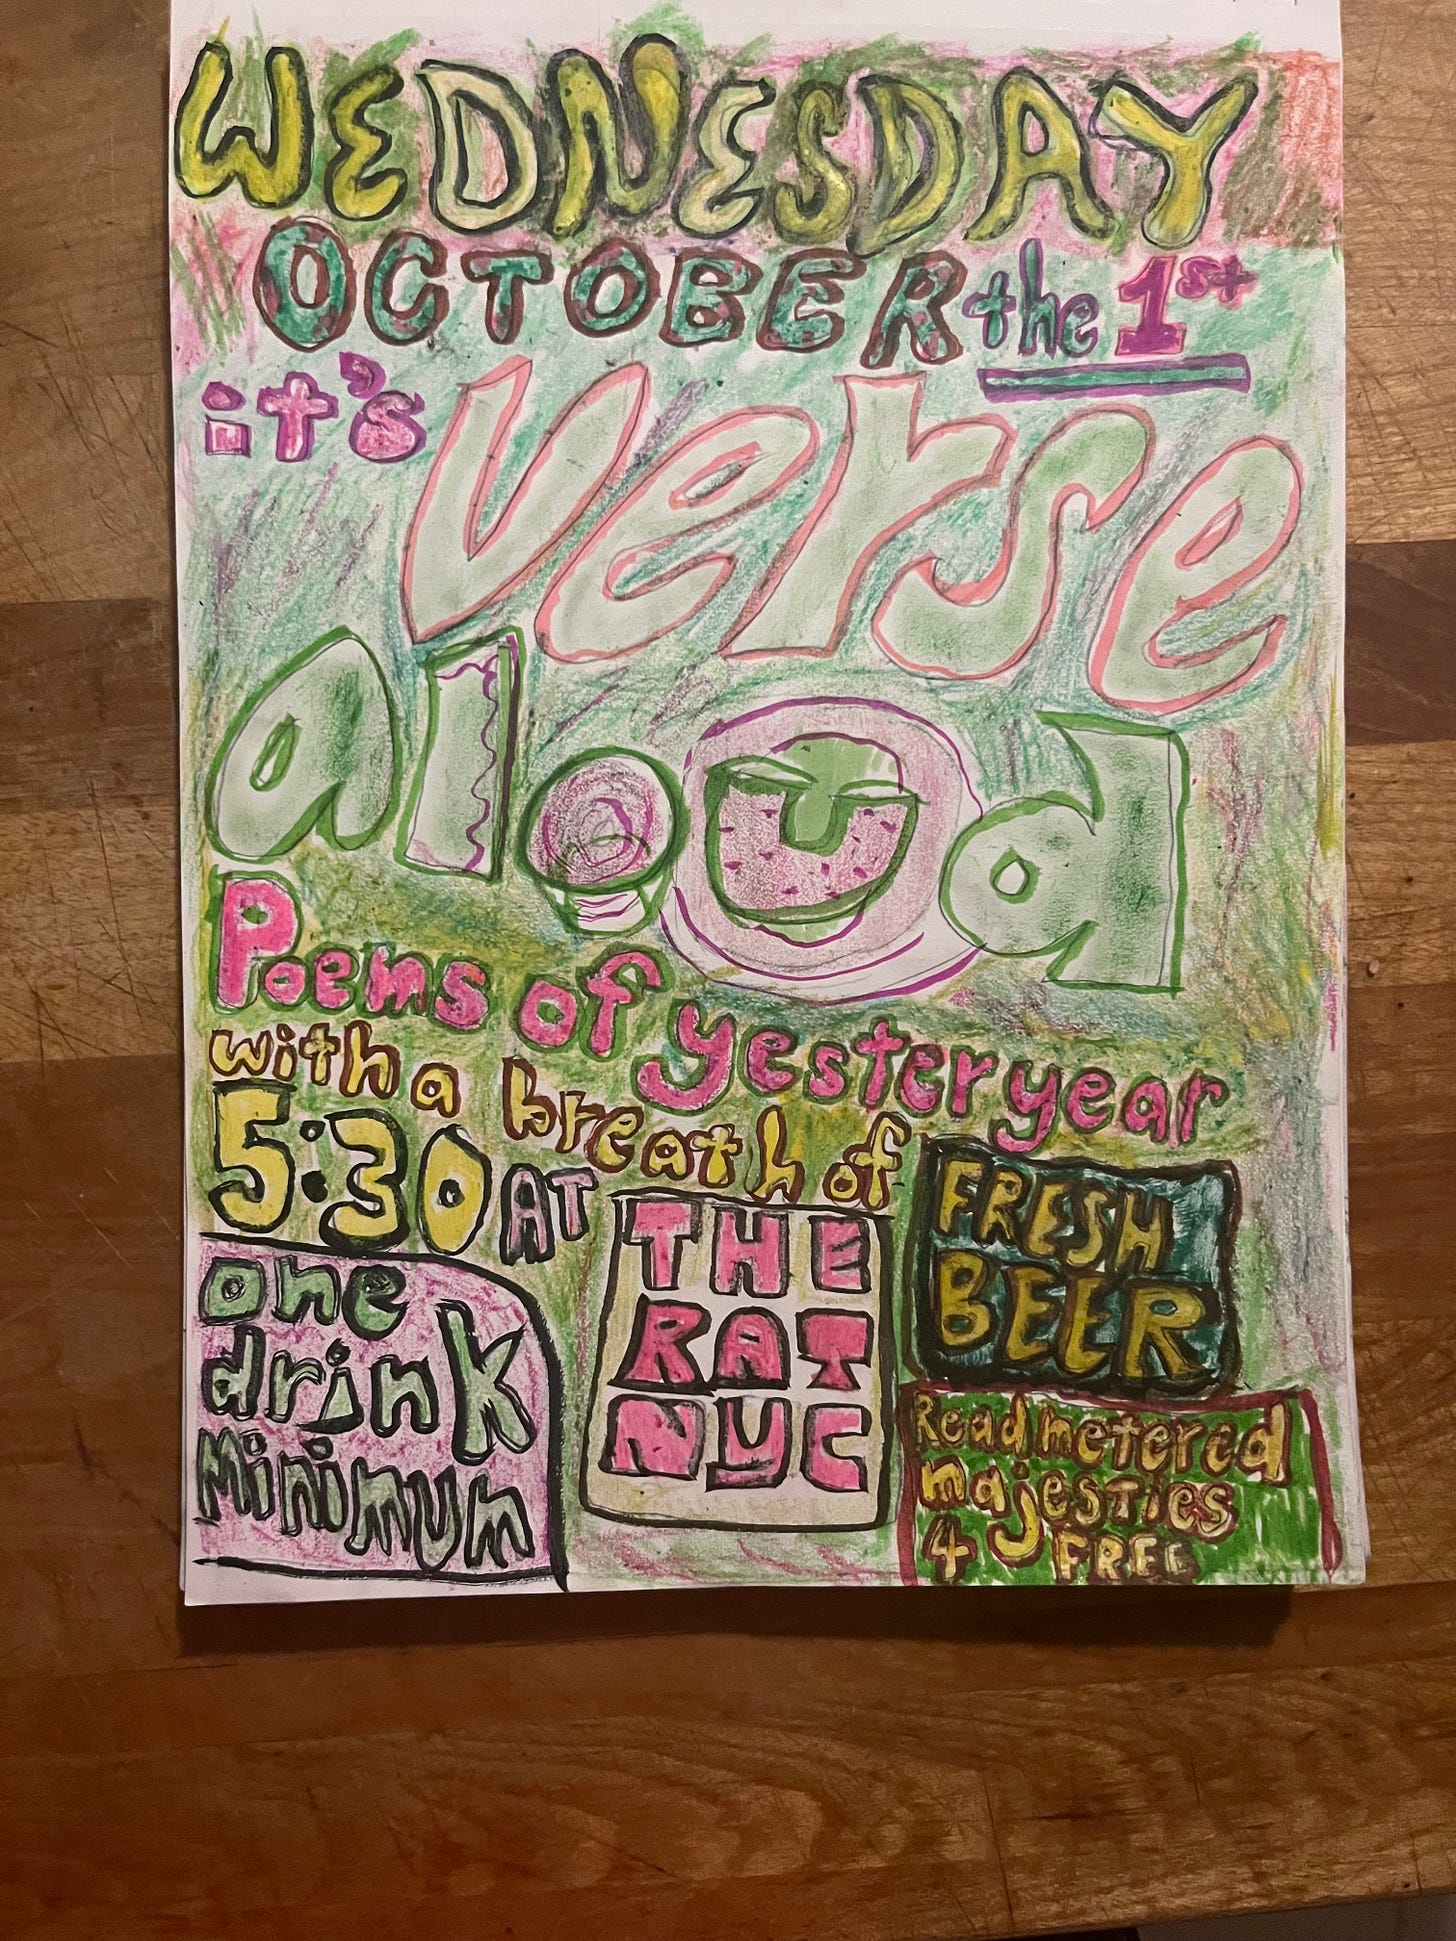 WEDNESDAY
OCTOBER the 1st
it's verse
aloud
Poems of yesteryear
with a breath of
FRESH
BEER
5:30 AT
THE
RAT
NYC
one
drink
Minimum
Read metered
majesties
4 FREE